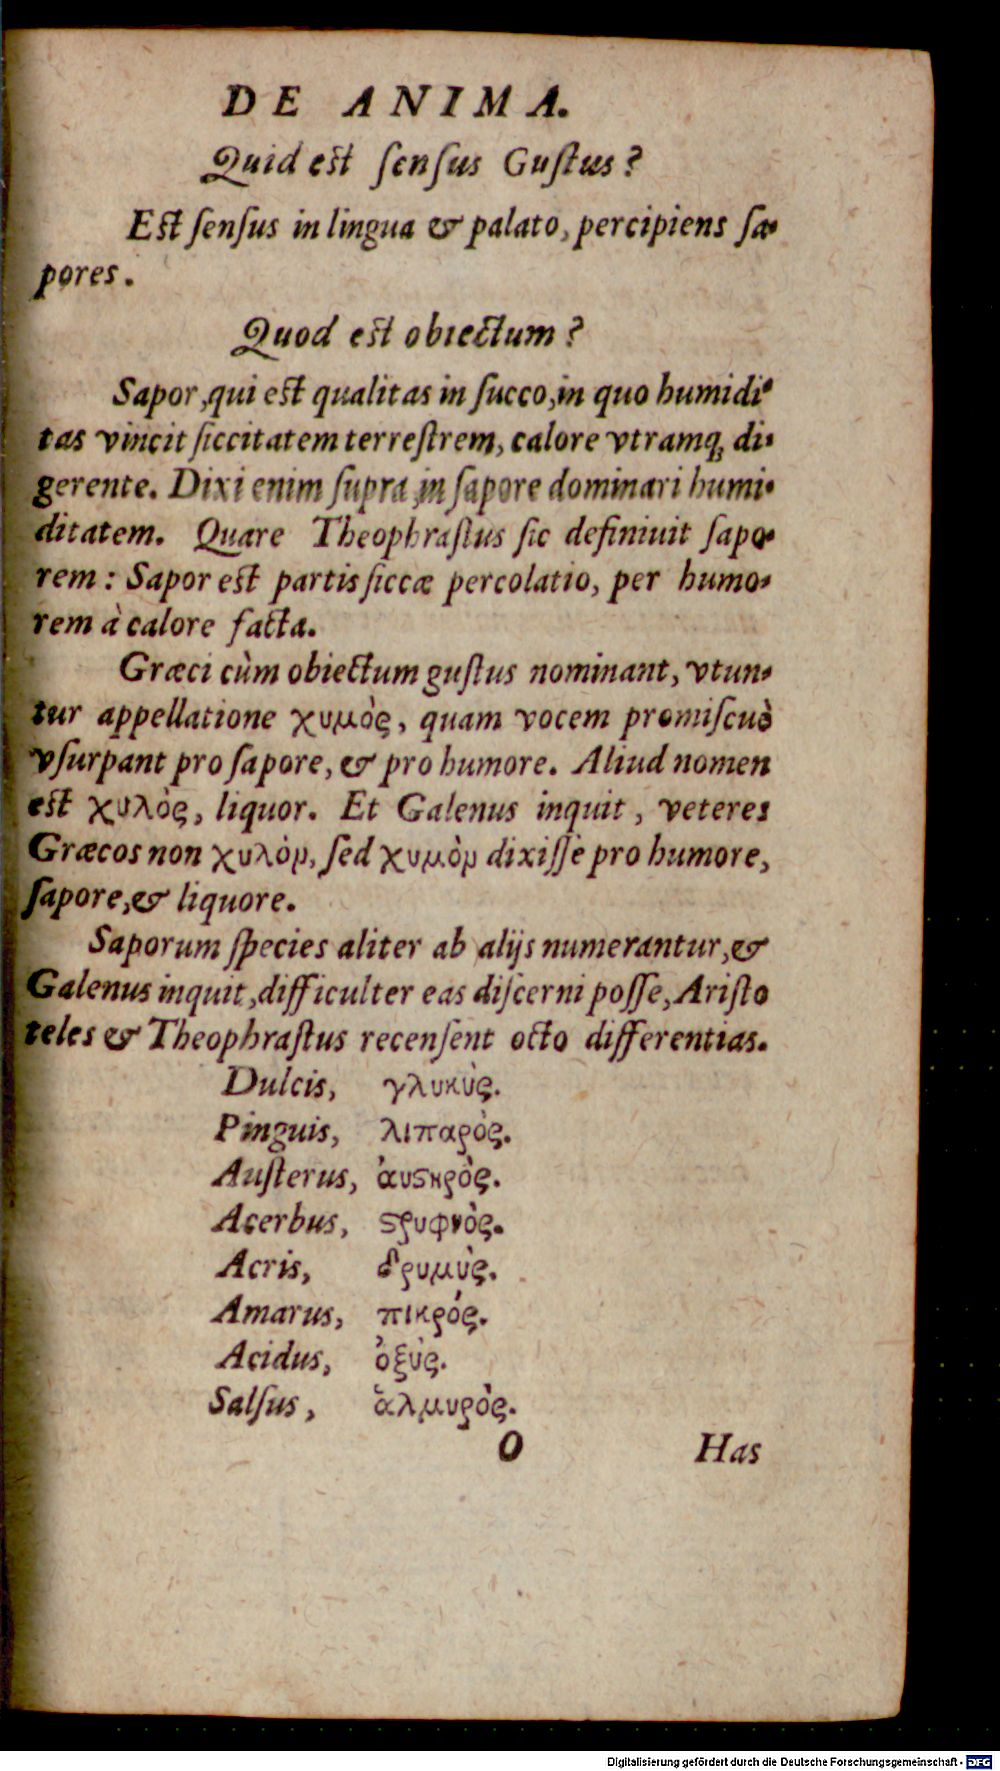 DE ANIMA.
Quid est sensus Gustus?
Est sensus in lingua & palato, percipiens sa-
pores.
Quod est obiectum?
Sapor, qui est qualitas in succo, in quo humidi-
tas vincit siccitatem terrestrem, calore vtramq; di-
gerente. Dixi enim supra in sapore dominari humi-
ditatem. Quare Theophrastus sic definiuit sapo-
rem: Sapor est partis siccæ percolatio, per humo-
rem à calore facta.
Græci cùm obiectum gustus nominant, vtun-
tur appellatione χυμὸς, quam vocem promiscuè
vsurpant pro sapore, & pro humore. Aliud nomen
est χυλὸς, liquor. Et Galenus inquit, veteres
Græcos non χυλὸν, sed χυμὸν dixisse pro humore,
sapore, & liquore.
Saporum species aliter ab alijs numerantur, &
Galenus inquit, difficulter eas discerni posse, Aristo
teles & Theophrastus recensent octo differentias.
Dulcis, γλυκὺς.
Pinguis, λιπαρὸς.
Austerus, ἀυϛηρὸς.
Acerbus, ϛρυφνὸς.
Acris, δριμὺς.
Amarus, πικρός.
Acidus, ὀξύς.
Salsus, ἁλμυρὸς.
O Has
Digitalisierung gefördert durch die Deutsche Forschungsgemeinschaft - DFG